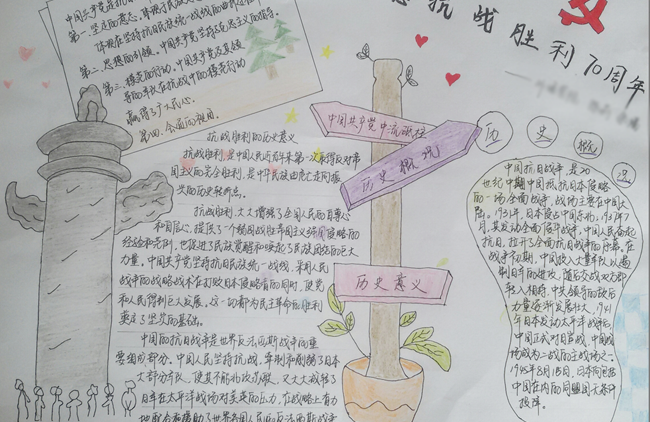 抗战胜利70周年
中国共产党是抗
第一,坚定的意志,
第二,思想的引领,中国共产党坚持马克思主义的指导
第三,
赢得了人民心
第四,全面的视角
中国共产党中流砥柱
历史概况
历史意义
历史概况
抗战胜利的历史意义
抗战胜利,是中国人民近百年来第一次取得反对帝
国主义的完全胜利,是中华民族由危亡走向振
兴的历史转折点。
抗战胜利,大大增强了全国人民的自尊心
和自信心,提供了一个弱国战胜帝国主义强国侵略的
经验和先例,也促进了民族觉醒和唤起了民族团结的巨大
力量。中国共产党坚持抗日民族统一战线,采用人民
战争的战略战术在打败日本侵略者的同时,使党
和人民得到巨大发展,这一切都为民主革命的胜利
奠定了坚实的基础。
中国的抗日战争是世界反法西斯战争的重
要组成部分。中国人民坚持抗战,牵制和削弱了日本
大部分兵力,使其不能北攻苏联,又大大减弱了
日军在太平洋战场对英美的压力,在战略上有力
地配合和援助了世界各国人民的反法西斯战争
中国抗日战争是20
世纪中期中国抵抗日本侵略
的一场全面战争,战场主要在中国大
陆。1931年,日本侵占中国东北,1937年7
月,其发动全面侵华战争,中国人民奋起
抗日,拉开了全面抗日战争的序幕。在
战争初期,中国投入大量军队以遏
制日军的进攻,随后交战双方都
转入相持,中共领导的敌后
力量逐渐发展壮大,1941
年日本发动太平洋战争后,
中国正式对日宣战,中国战
场成为二战的主战场之一。
1945年8月15日,日本向包括
中国在内的同盟国无条件
投降。